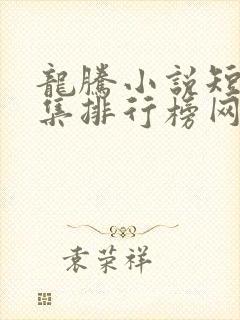 龍騰小説短
集排行榜网
袁荣祥